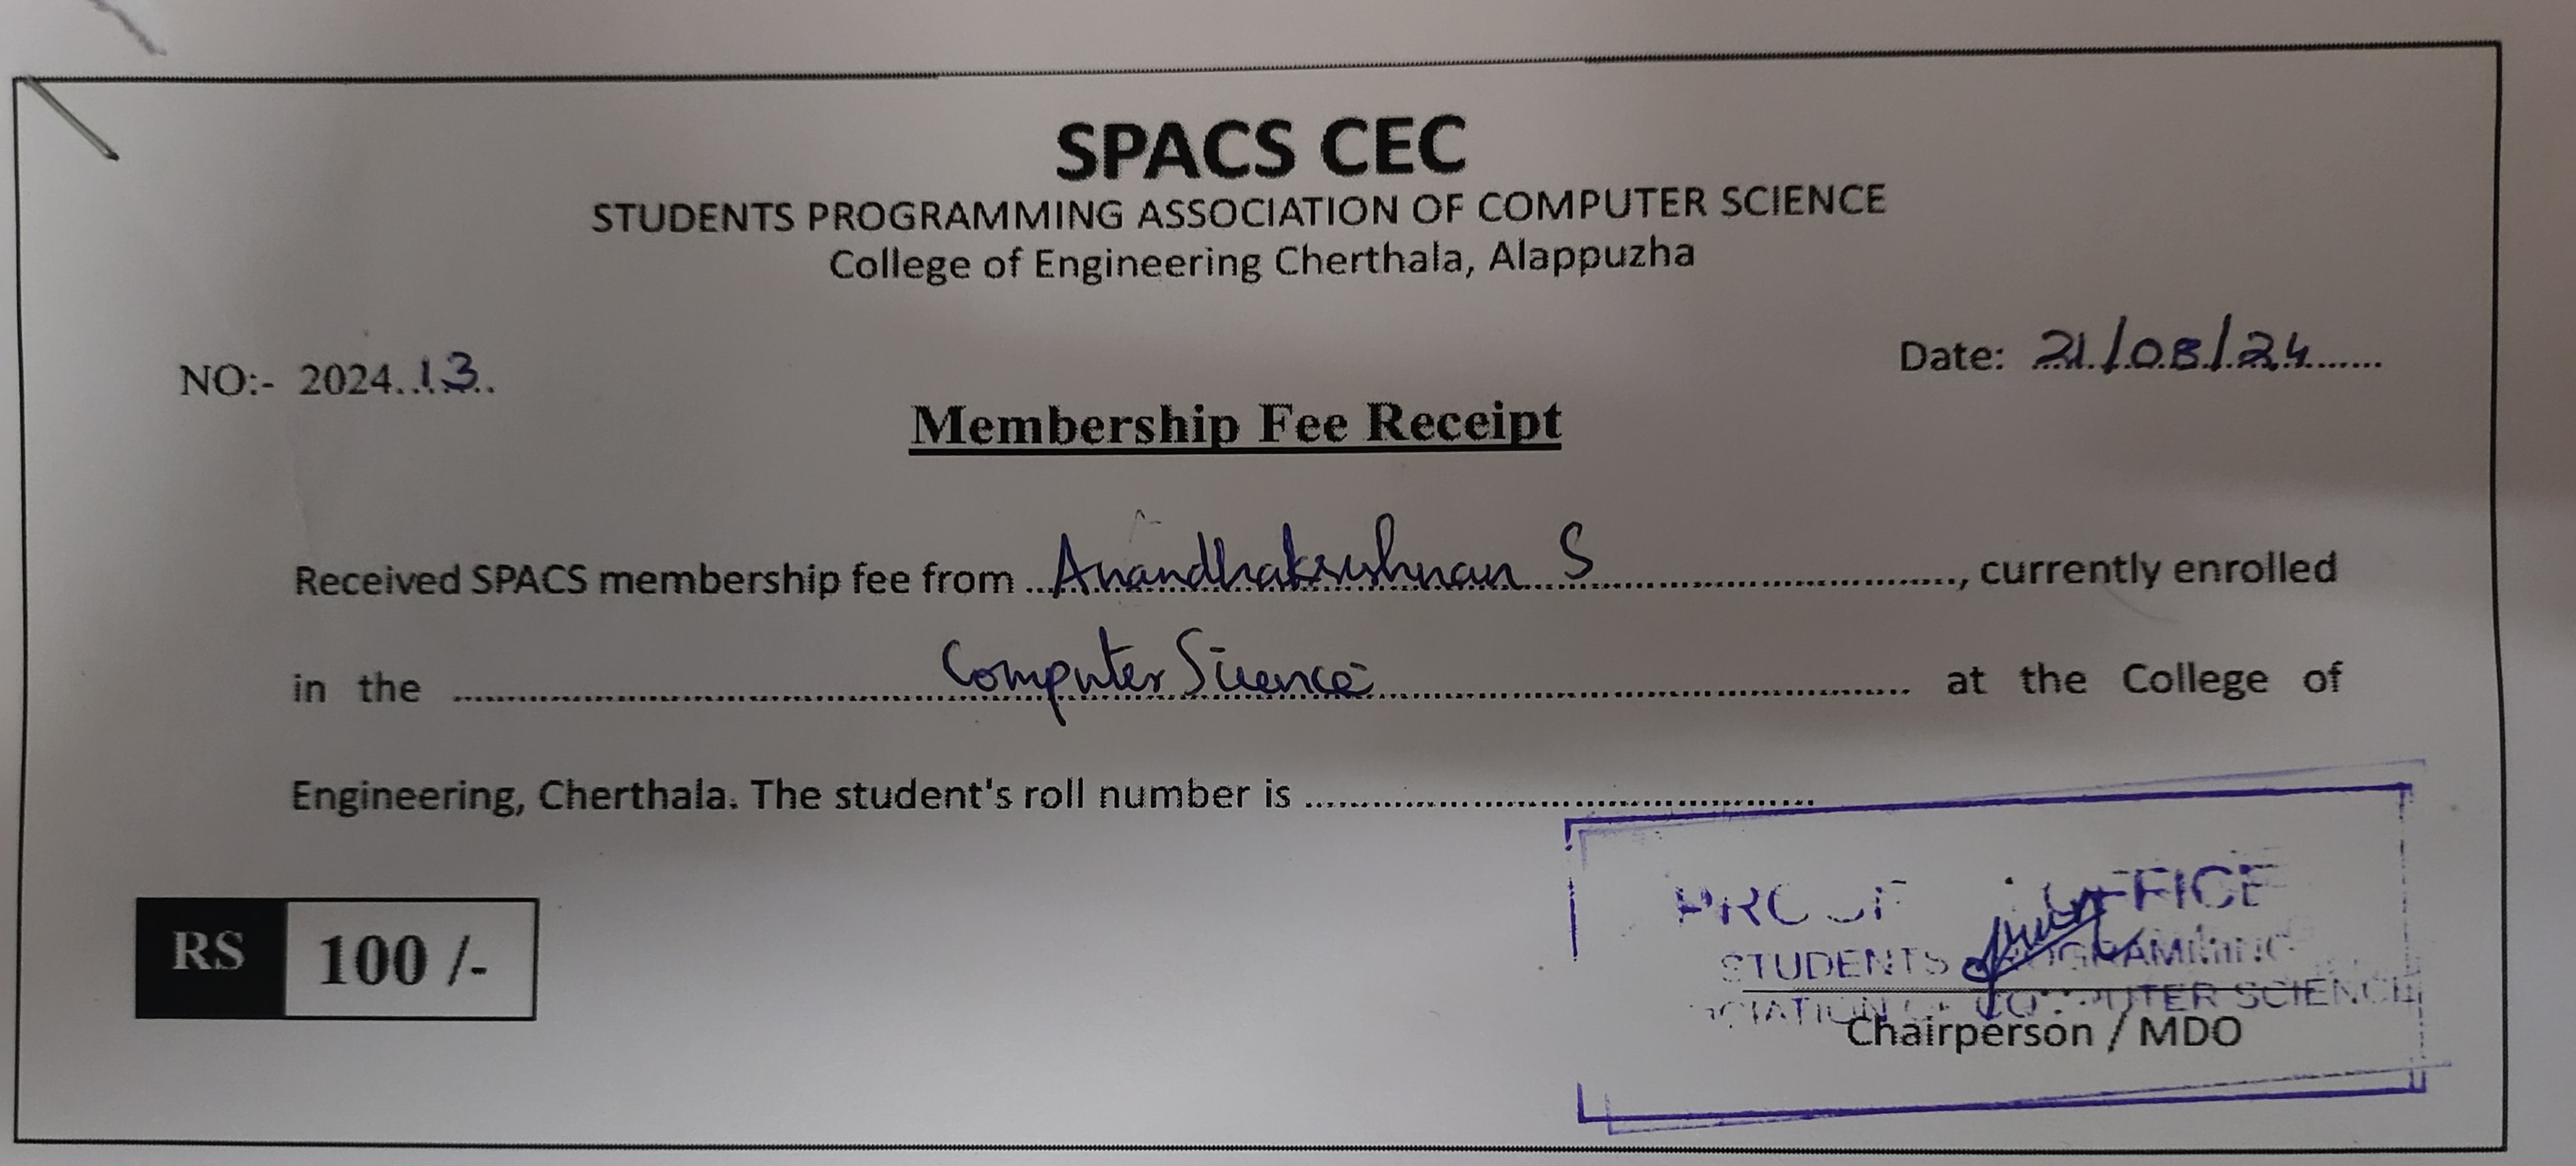 SPACS CEC
STUDENTS PROGRAMMING ASSOCIATION OF COMPUTER SCIENCE
College of Engineering Cherthala, Alappuzha
NO:- 2024..13..
Date: 21/08/24......
Membership Fee Receipt
Received SPACS membership fee from ...Anandhakrishnan S..................................., currently enrolled
in the ................Computer Science................ at the College of
Engineering, Cherthala. The student's roll number is ....................................................
RS 100 /-
OFFICE
STUDENTS PROGRAMMING
COMPUTER SCIENCE
Chairperson / MDO